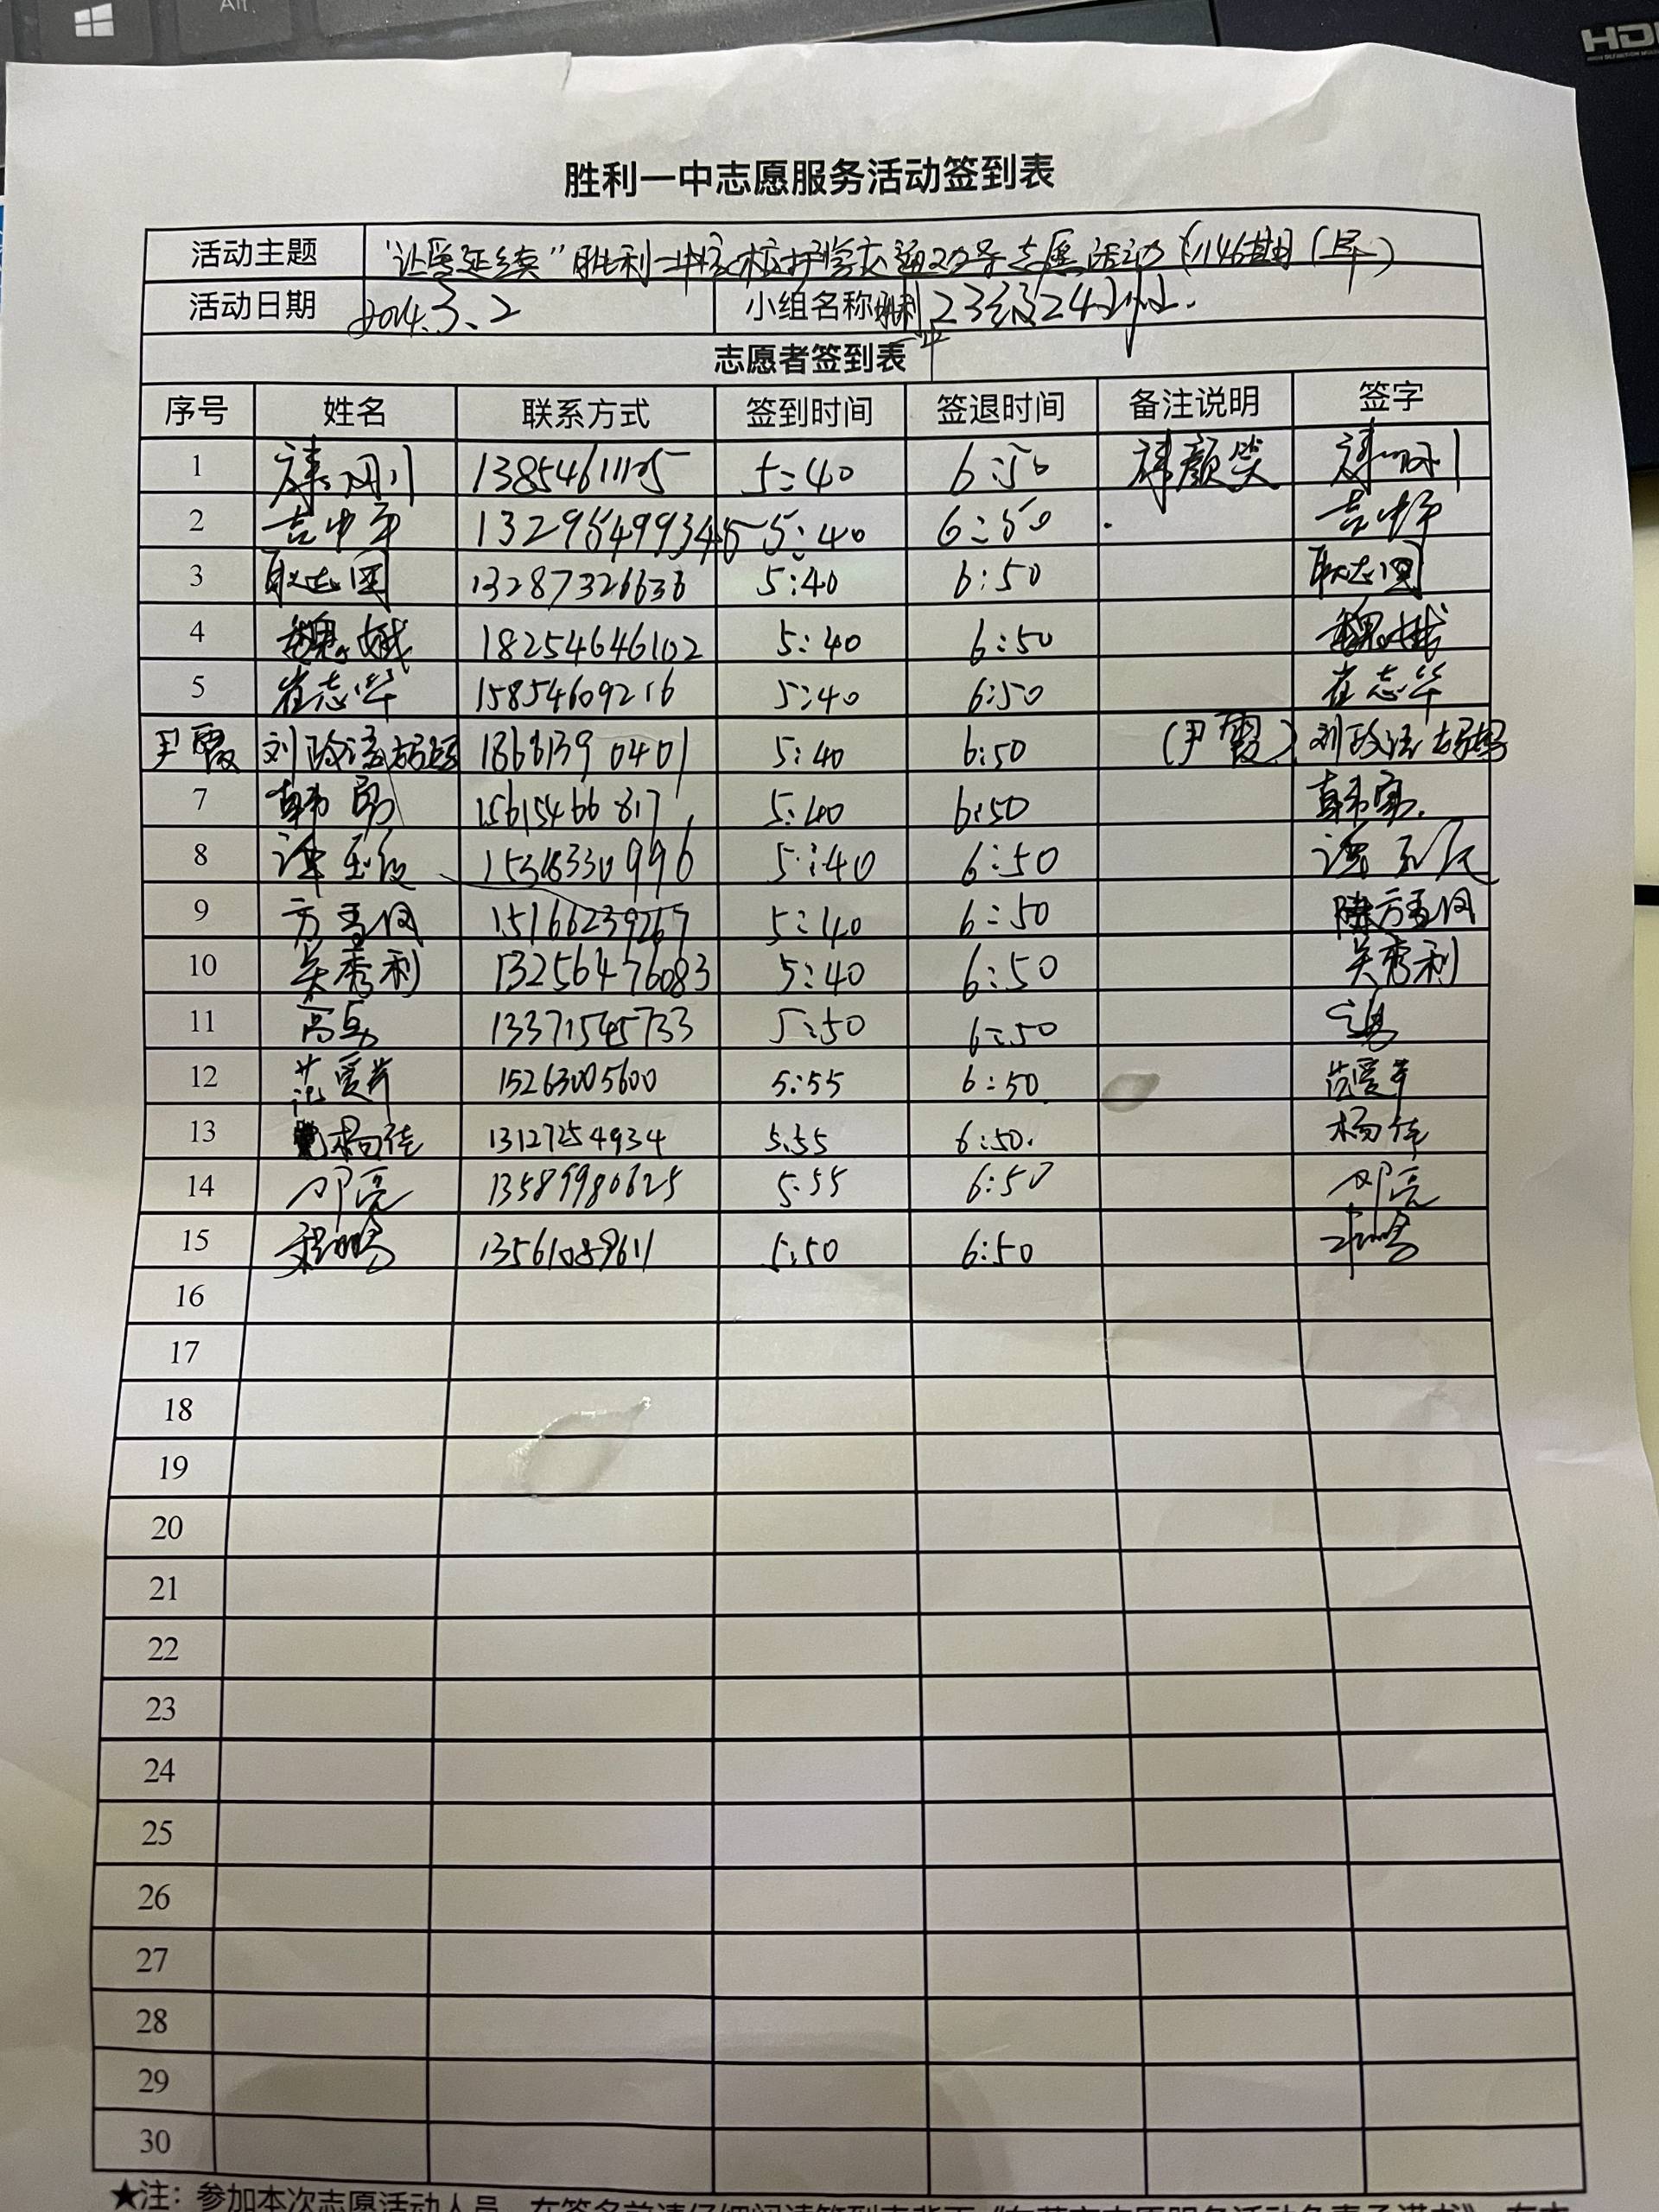 Alt
HD
胜利一中志愿服务活动签到表
活动主题 "让爱延续"胜利一中家校护学交通劝导志愿活动 146期(早)
活动日期 2024.3.2 小组名称 胜利一中 23级24
志愿者签到表
序号 姓名 联系方式 签到时间 签退时间 备注说明 签字
1 13854611105 5:40 6:50 颜笑
2 吉中平 13295499345 5:40 6:50 吉中平
3 耿志国 13287326636 5:40 6:50 耿志国
4 魏娥 18254646102 5:40 6:50 魏娥
5 崔志华 15854609216 5:40 6:50 崔志华
尹霞 刘政 妈妈 5:40 6:50 (尹霞) 刘政 妈妈
7 韩 5:40 6:50 韩
8 谭 15318330996 5:40 6:50 谭
9 方 15166239267 5:40 6:50 方
10 吴秀利 13256476083 5:40 6:50 吴秀利
11 高 13371545733 5:50 6:50
12 范爱芹 15263005600 5:55 6:50 范爱芹
13 杨佳 13127254934 5:55 6:50. 杨佳
14 邓亮 13589980625 5:55 6:50 邓亮
15 13561089611 5:50 6:50
16
17
18
19
20
21
22
23
24
25
26
27
28
29
30
★注：参加本次志愿活动人员，在签名前请仔细阅读签到表背面